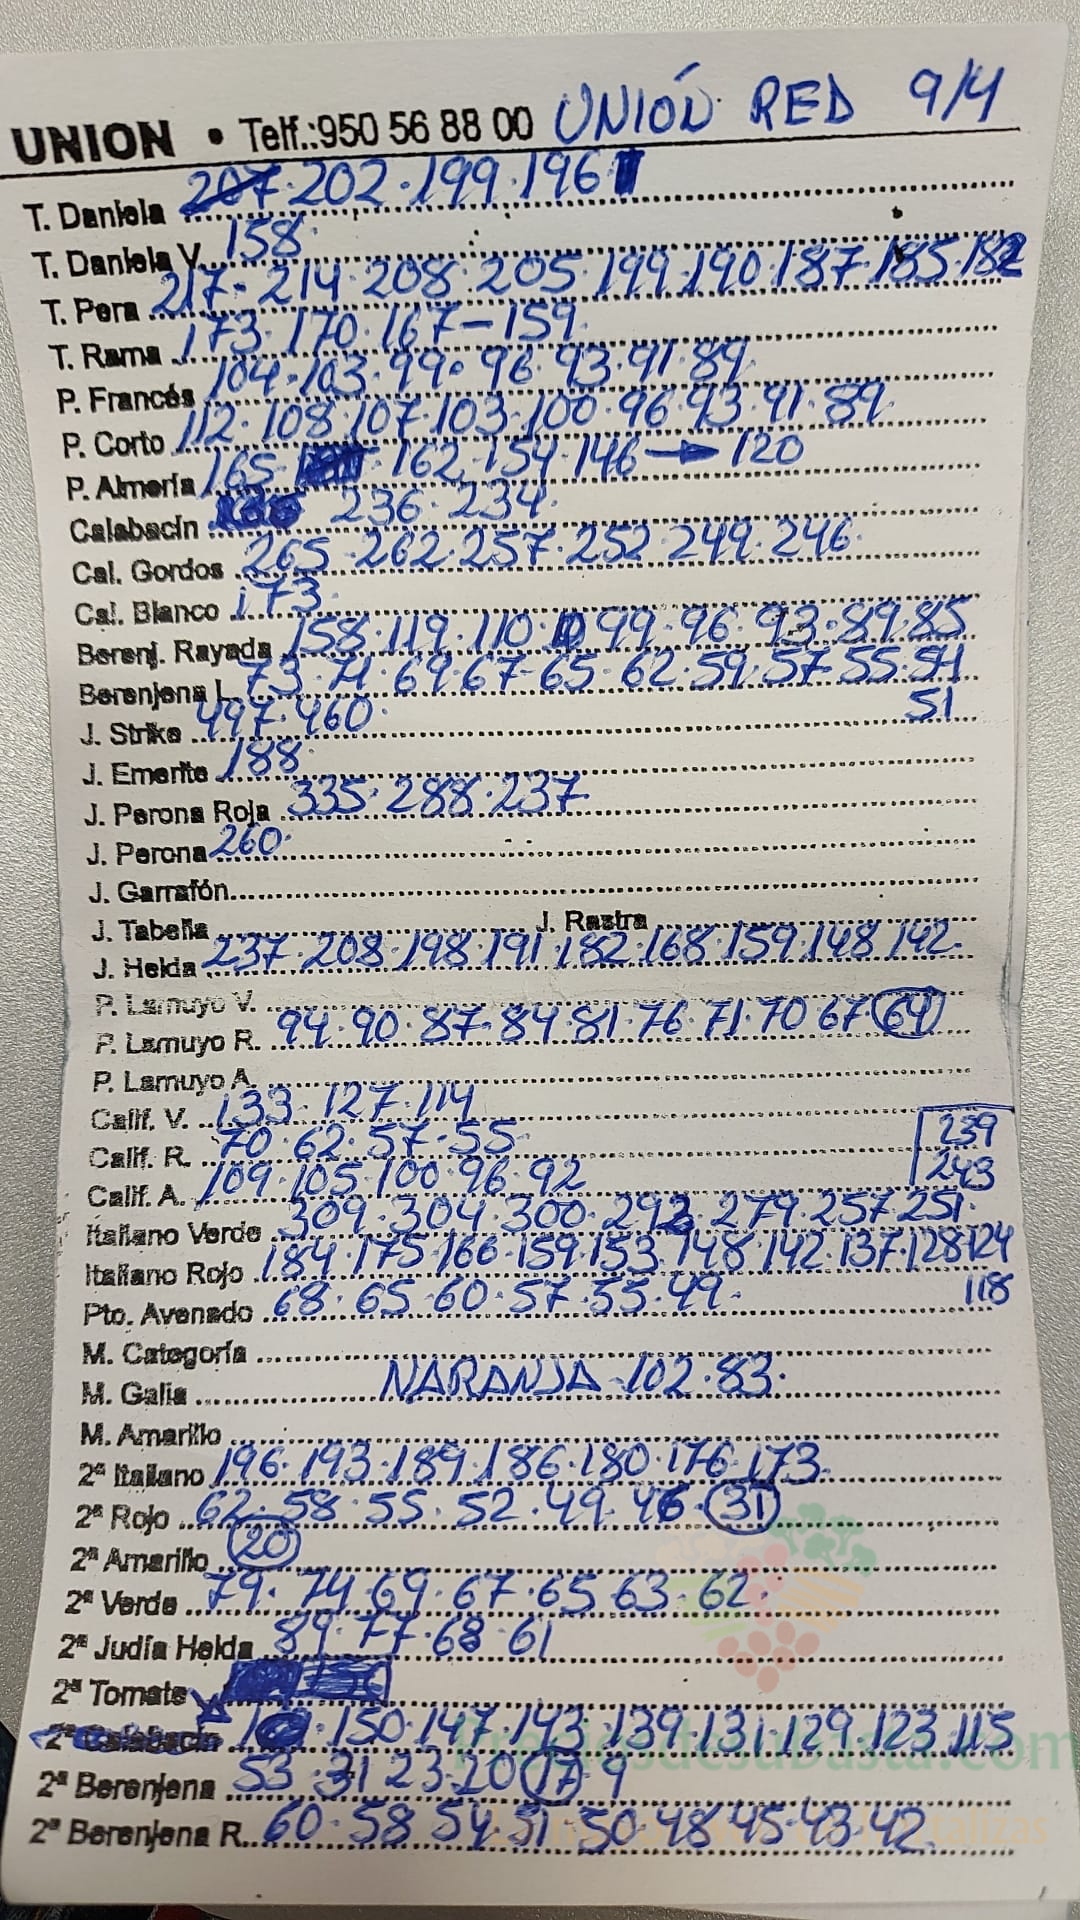 UNION • Telf.:950 56 88 00 UNIÓN RED 9/4
T. Daniela 207·202·199·196
T. Daniela V. 158·
T. Pera 217·214·208·205·199·190·187·185·182
T. Rama 173·170·167-159·
P. Francés 104·103·99·96·93·91·89
P. Corto 112·108·107·103·100·96·93·91·89
P. Almería 165· 162·154·146→120
Calabacín 236·234·
Cal. Gordos 265·262·257·252·249·246·
Cal. Blanco 173·
Berenj. Rayada 158·119·110· 99·96·93·89·85
Berenjena L. 73·71·69·67·65·62·59·57·55·54
51
J. Strike 497·460·
J. Emerite 188·
J. Perona Roja 335·288·237
J. Perona 260·
J. Garrafón
J. Tabella J. Rastra
J. Helda 237·208·198·191·182·168·159·148·142·
P. Lamuyo V.
P. Lamuyo R. 94·90·87·84·81·76·71·70·67 64
P. Lamuyo A.
Calif. V. 133·127·114
Calif. R. 70·62·57·55· 239
Calif. A. 109·105·100·96·92 243
Italiano Verde 309·304·300·292·279·257·251·
Italiano Rojo 184·175·166·159·153·148·142·137·128·124
118
Pto. Avenado 68·65·60·57·55·49·
M. Categoría
M. Galia NARANJA 102·83·
M. Amarillo
2ª Italiano 196·193·189·186·180·176·173·
2ª Rojo 62·58·55·52·49·46·31
2ª Amarillo 20
2ª Verde 79·74·69·67·65·63·62·
2ª Judía Helda 89·77·68·61
2ª Tomate
2ª Calabacín 150·147·143·139·131·129·123·115
2ª Berenjena 53·31·23·20·17·9
2ª Berenjena R. 60·58·54·51·50·48·45·43·42·